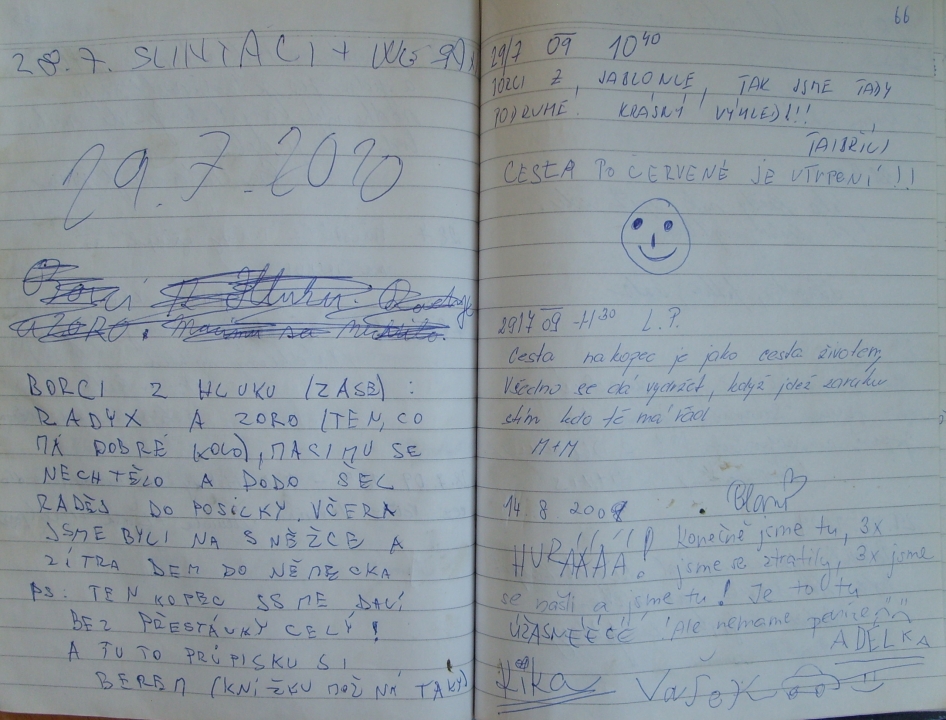 28.7. SLINTÁCI +
29.7.2010
BORCI Z HLUKU (ZASE):
RADYX A ZORO (TEN, CO
MÁ DOBRÉ KOLO), MACIMU SE
NECHTĚLO A DODO ŠEL
RADĚJ DO POSILKY. VČERA
JSME BYLI NA SNĚŽCE A
ZÍTRA DEM DO NĚMECKA
PS: TEN KOPEC SSME DALI
BEZ PŘESTÁVKY CELÝ!
A TU TO PRÚPISKU SI
BEREM (KNÍŽKU MOŽNÁ TAKY)
66
29/7 09 10 40
BORCI Z JABLONCE, TAK JSME TADY
PODRUHÉ. KRÁSNÝ VÝHLED!!!
CESTA PO ČERVENÉ JE UTRPENÍ!!
29/7 09 -11 30 L.P.
Cesta na kopec je jako cesta životem,
Všechno se dá vydržet, když jdeš
stím kdo tě má rád
M+M
14. 8. 2009
HURÁÁÁÁ! Konečně jsme tu, 3x
jsme se ztratily, 3x jsme
se našli a jsme tu! Je to tu
ÚŽASNÉÉČÉ! Ale nemáme peníze
ADÉLKA